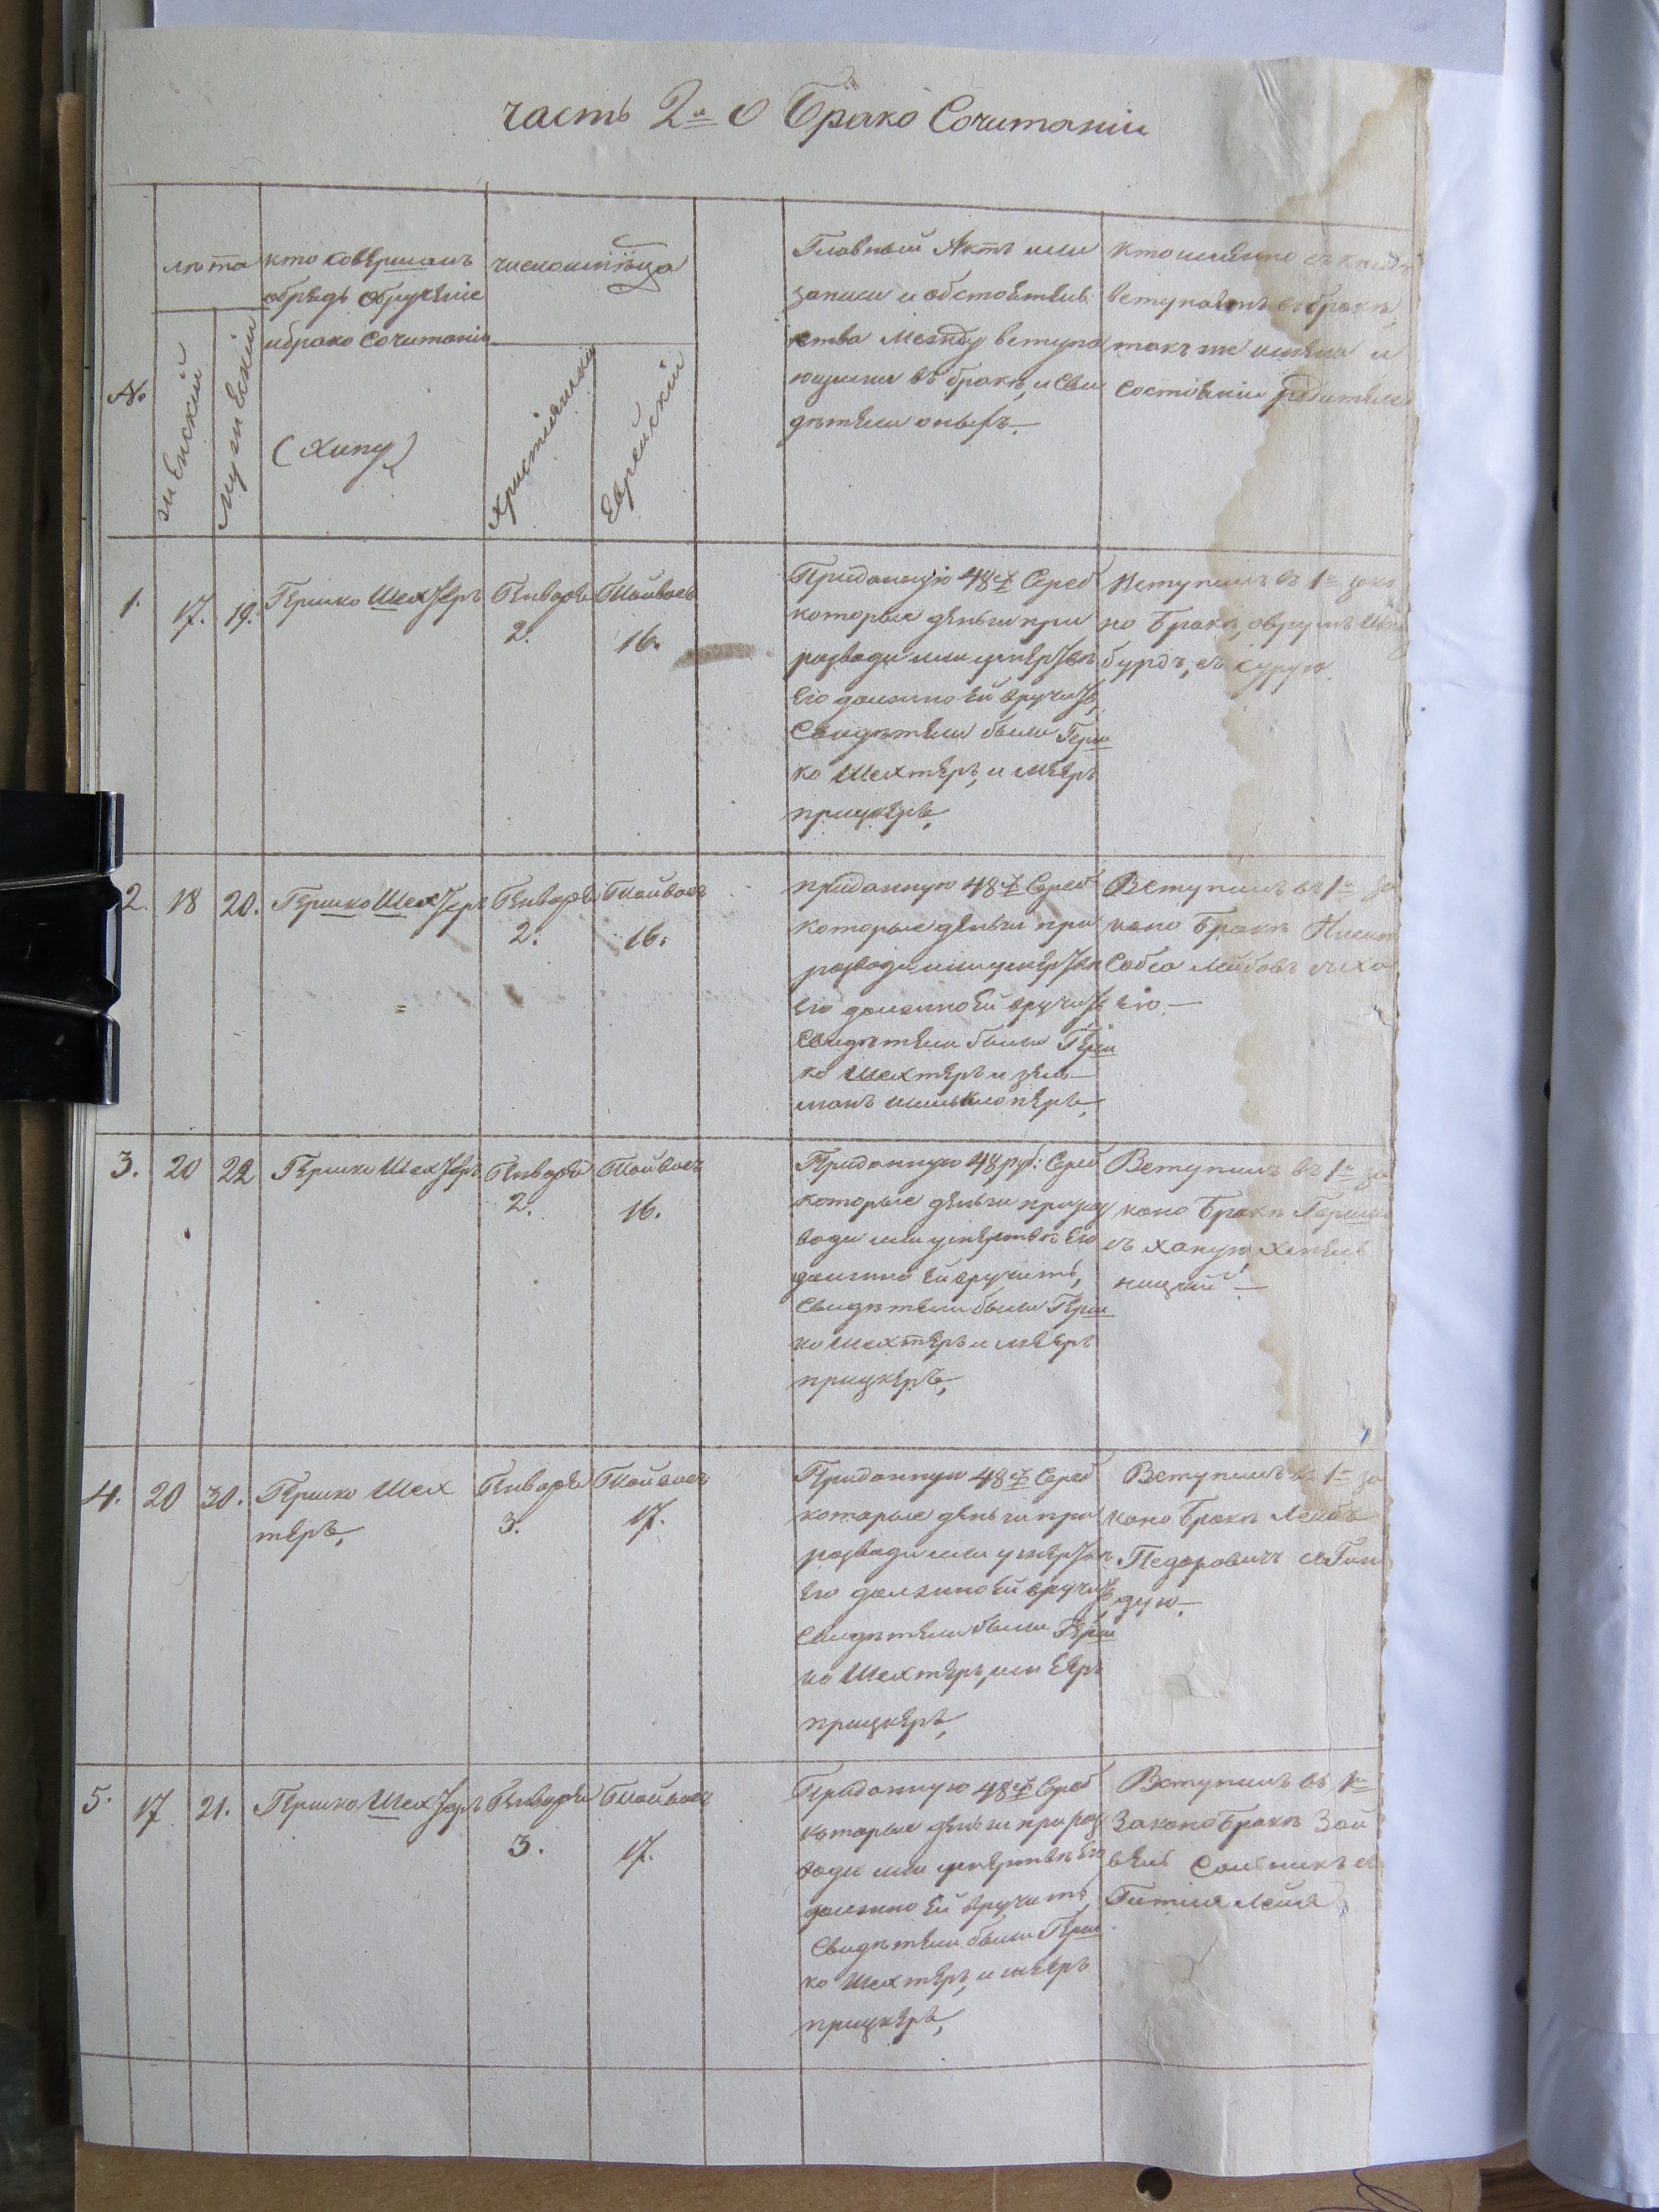 часть 2я О Брако Сочитании
№
лѣта
женский
мужеский
кто совершалъ
обрядъ обручение
ибрако сочитания
(Хипу)
число имѣсяца
Християнский
Еврейский
Главный Актъ или
записи и обстоятель
ства Между вступа
ющими въ бракъ, и сви
дѣтели оныхъ
кто имянно съ кемъ
вступаетъ въ бракъ
такъ же имяна и
состояние родителей
1.
17.
19.
Гершко Шехтеръ
Генваря
2.
Тойвесъ
16.
Приданную 48 р Сереб
которые деньги при
разводи или умертвѣ
Его должно Ей вручить,
Свидѣтели были Герш
ко Шехтеръ, и Мееръ
прицкеръ,
Вступилъ въ 1й зако
но Бракъ, Аврумъ
бурдъ, съ Сурую
2.
18
20.
Гершко Шехтеръ
Генваря
2.
Тойвесъ
16.
приданную 48 р Сереб
которые деньги при
разводи или умертвѣ
Его должно Ей вручить
Свидѣтели были Герш
ко Шехтеръ и зель
манъ
Вступилъ въ 1й за
коно Бракъ
Лейбовъ съ Ха
ею
3.
20
22
Гершко Шехтеръ
Генваря
2.
Тойвесъ
16.
Приданную 48 руб: Сереб
которые деньги прираз
води или умертвѣ Его
должно Ей вручить,
Свидѣтели были Герш
ко Шехтеръ и Мееръ
прицкеръ,
Вступилъ въ 1й за
коно Бракъ Гершко
съ Ханую, Хмель
ницкий
4.
20
30.
Гершко Шех
теръ,
Генваря
3.
Тойвесъ
17.
Приданную 48 р Сереб
которые деньги при
разводи или умертвѣ
Его должно Ей вручить
Свидѣтели были Герш
ко Шехтеръ, и Мееръ
прицкеръ,
Вступилъ въ 1й за
коно Бракъ Лейбъ
Педоровичъ съ Гин
дую
5.
17
21.
Гершко Шехтеръ
Генваря
3.
Тойвесъ
17.
Приданную 48 р Сереб
которые деньги прираз
води или умертвѣ Его
должно Ей вручить,
Свидѣтели были Герш
ко Шехтеръ, и Мееръ
прицкеръ,
Вступилъ въ 1й
Законо Бракъ Зай
вель Сольникъ съ
Гитля Лейя